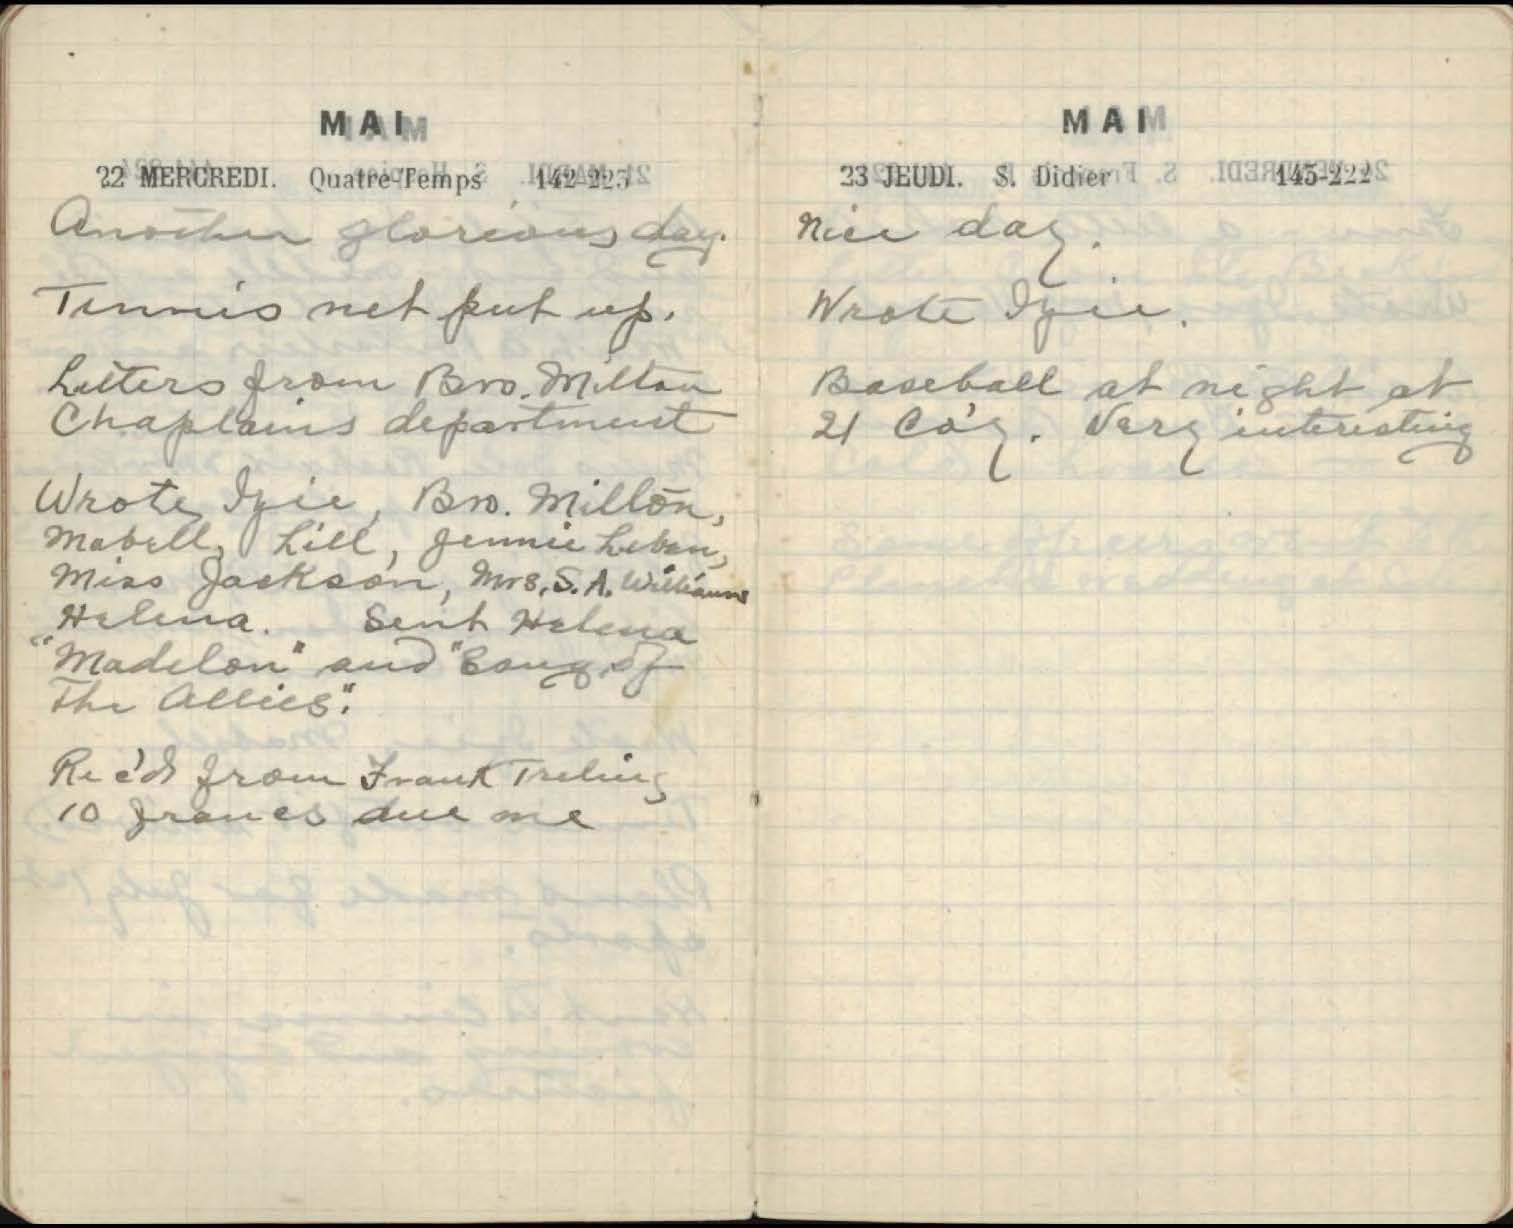 MAI
22 MERCREDI. Quatre-Temps 142-223
Another glorious day.
Tennis net put up.
Letters from Bro. Milton
Chaplains department
Wrote Izie, Bro. Milton,
Mabell, Lill, Jennie Leban,
Miss Jackson, Mrs. S. A. Williams
Helena. Sent Helena
"Madelon" and "Song of
The Allies".
Rec'd from Frank
10 francs due me
MAI
23 JEUDI. S. Didier 143-222
Nice day.
Wrote Izie.
Baseball at night at
21 Co'y. Very interesting